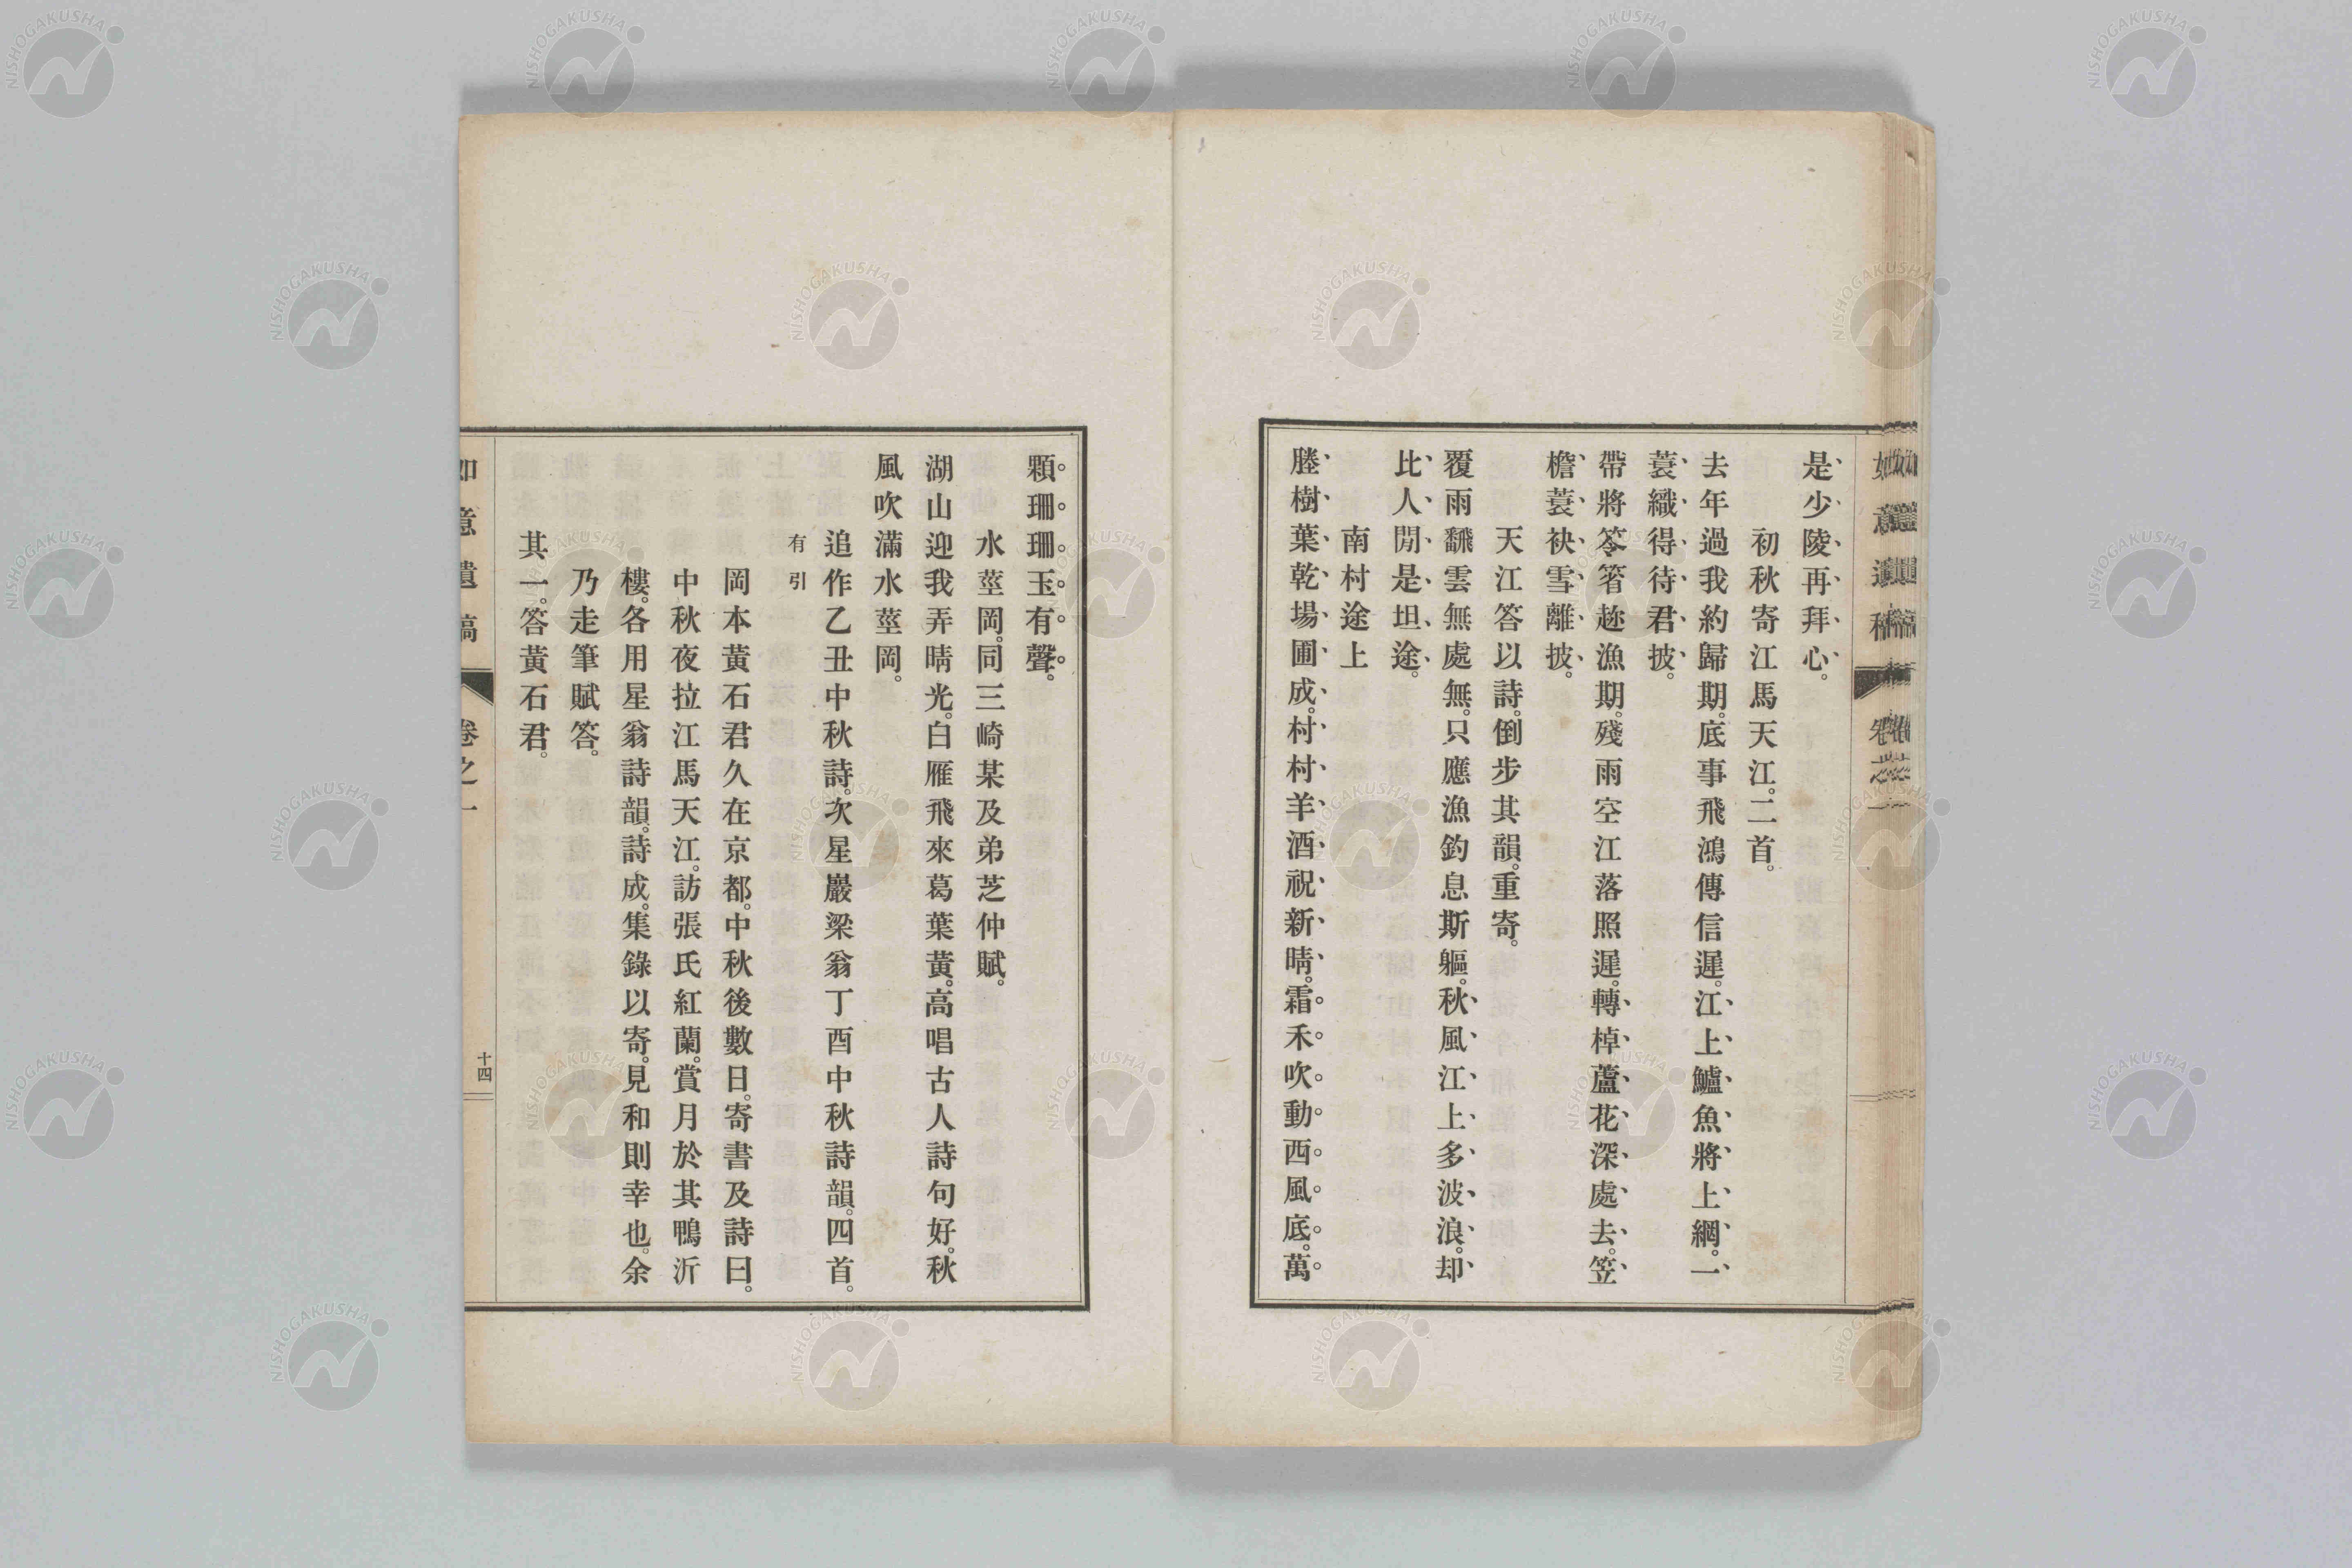 是少陵再拜心。
初秋寄江馬天江。二首。
去年過我約歸期。底事飛鴻傳信遲。江上鱸魚將上網。一
蓑織得待君披。
帶將笭箵趂漁期。殘雨空江落照遲。轉棹蘆花深處去。笠
檐蓑袂雪離披。
天江答以詩。倒步其韻。重寄。
覆雨飜雲無處無。只應漁釣息斯軀。秋風江上多波浪。却
比人間是坦途。
南村途上
塍樹葉乾場圃成。村村羊酒祝新晴。霜禾吹動西風底。萬
顆珊珊玉有聲。
水莖岡。同三崎某及弟芝仲賦。
湖山迎我弄晴光。白雁飛來葛葉黃。高唱古人詩句好。秋
風吹滿水莖岡。
追作乙丑中秋詩。次星巖梁翁丁酉中秋詩韻。四首。
有引
岡本黃石君久在京都。中秋後數日。寄書及詩曰。
中秋夜拉江馬天江。訪張氏紅蘭。賞月於其鴨沂
樓。各用星翁詩韻。詩成。集錄以寄。見和則幸也。余
乃走筆賦答。
其一。答黃石君。
如意遺稿 卷之一 十四
NISHOGAKUSHA